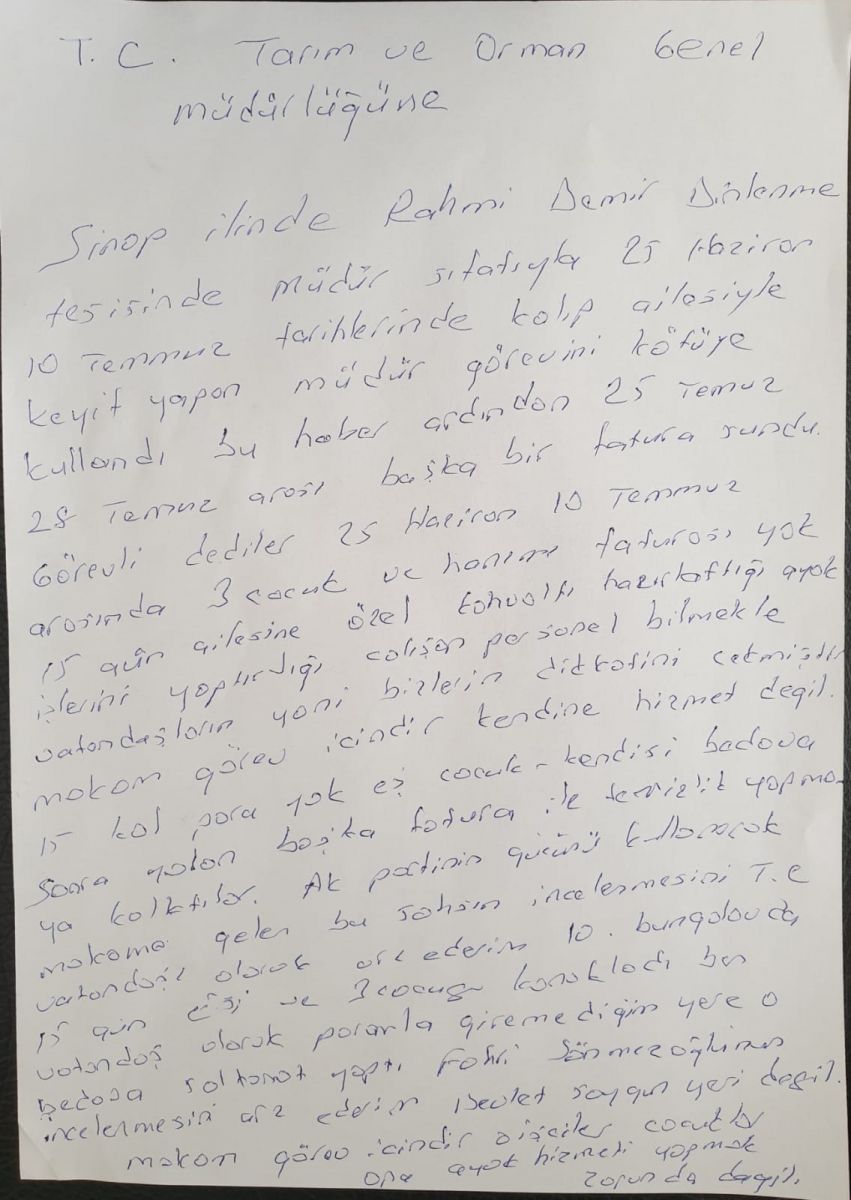 T.C. Tarım ve Orman Genel
müdürlüğüne
Sinop ilinde Rahmi Demir Dinlenme
tesisinde müdür sıfatıyla 25 Haziran
10 Temmuz tarihlerinde kalıp ailesiyle
keyif yapan müdür görevini kötüye
kullandı bu haber ardından 25 Temuz
28 Temuz arası başka bir fatura sundu.
Görevli dediler 25 Haziran 10 Temmuz
arasında 3 çocuk ve hanımı faturası yok
15 gün ailesine özel kahvaltı hazırlattığı ayak
işlerini yaptırdığı çalışan personel bilmekle
vatandaşların yani bizlerin dikkatini çekmiştir
makam görev içindir kendine hizmet değil.
15 kal para yok eş çocuk-kendisi bedava
sonra yalan başka fatura ile temizlik yapma-
ya kalktılar. Ak partinin gücünü kullanarak
makama gelen bu şahsın incelenmesini T.C
vatandaşı olarak arz ederim 10. bungalovda
15 gün eşi ve 3 çocuğu konakladı ben
vatandaş olarak paramla giremediğim yere o
bedava saltanat yaptı Fahri Sönmezoğlunun
incelenmesini arz ederim Devlet soygun yeri değil.
makam görev içindir işçiler çocuklar
ona ayak hizmeti yapmak
zorunda değil.